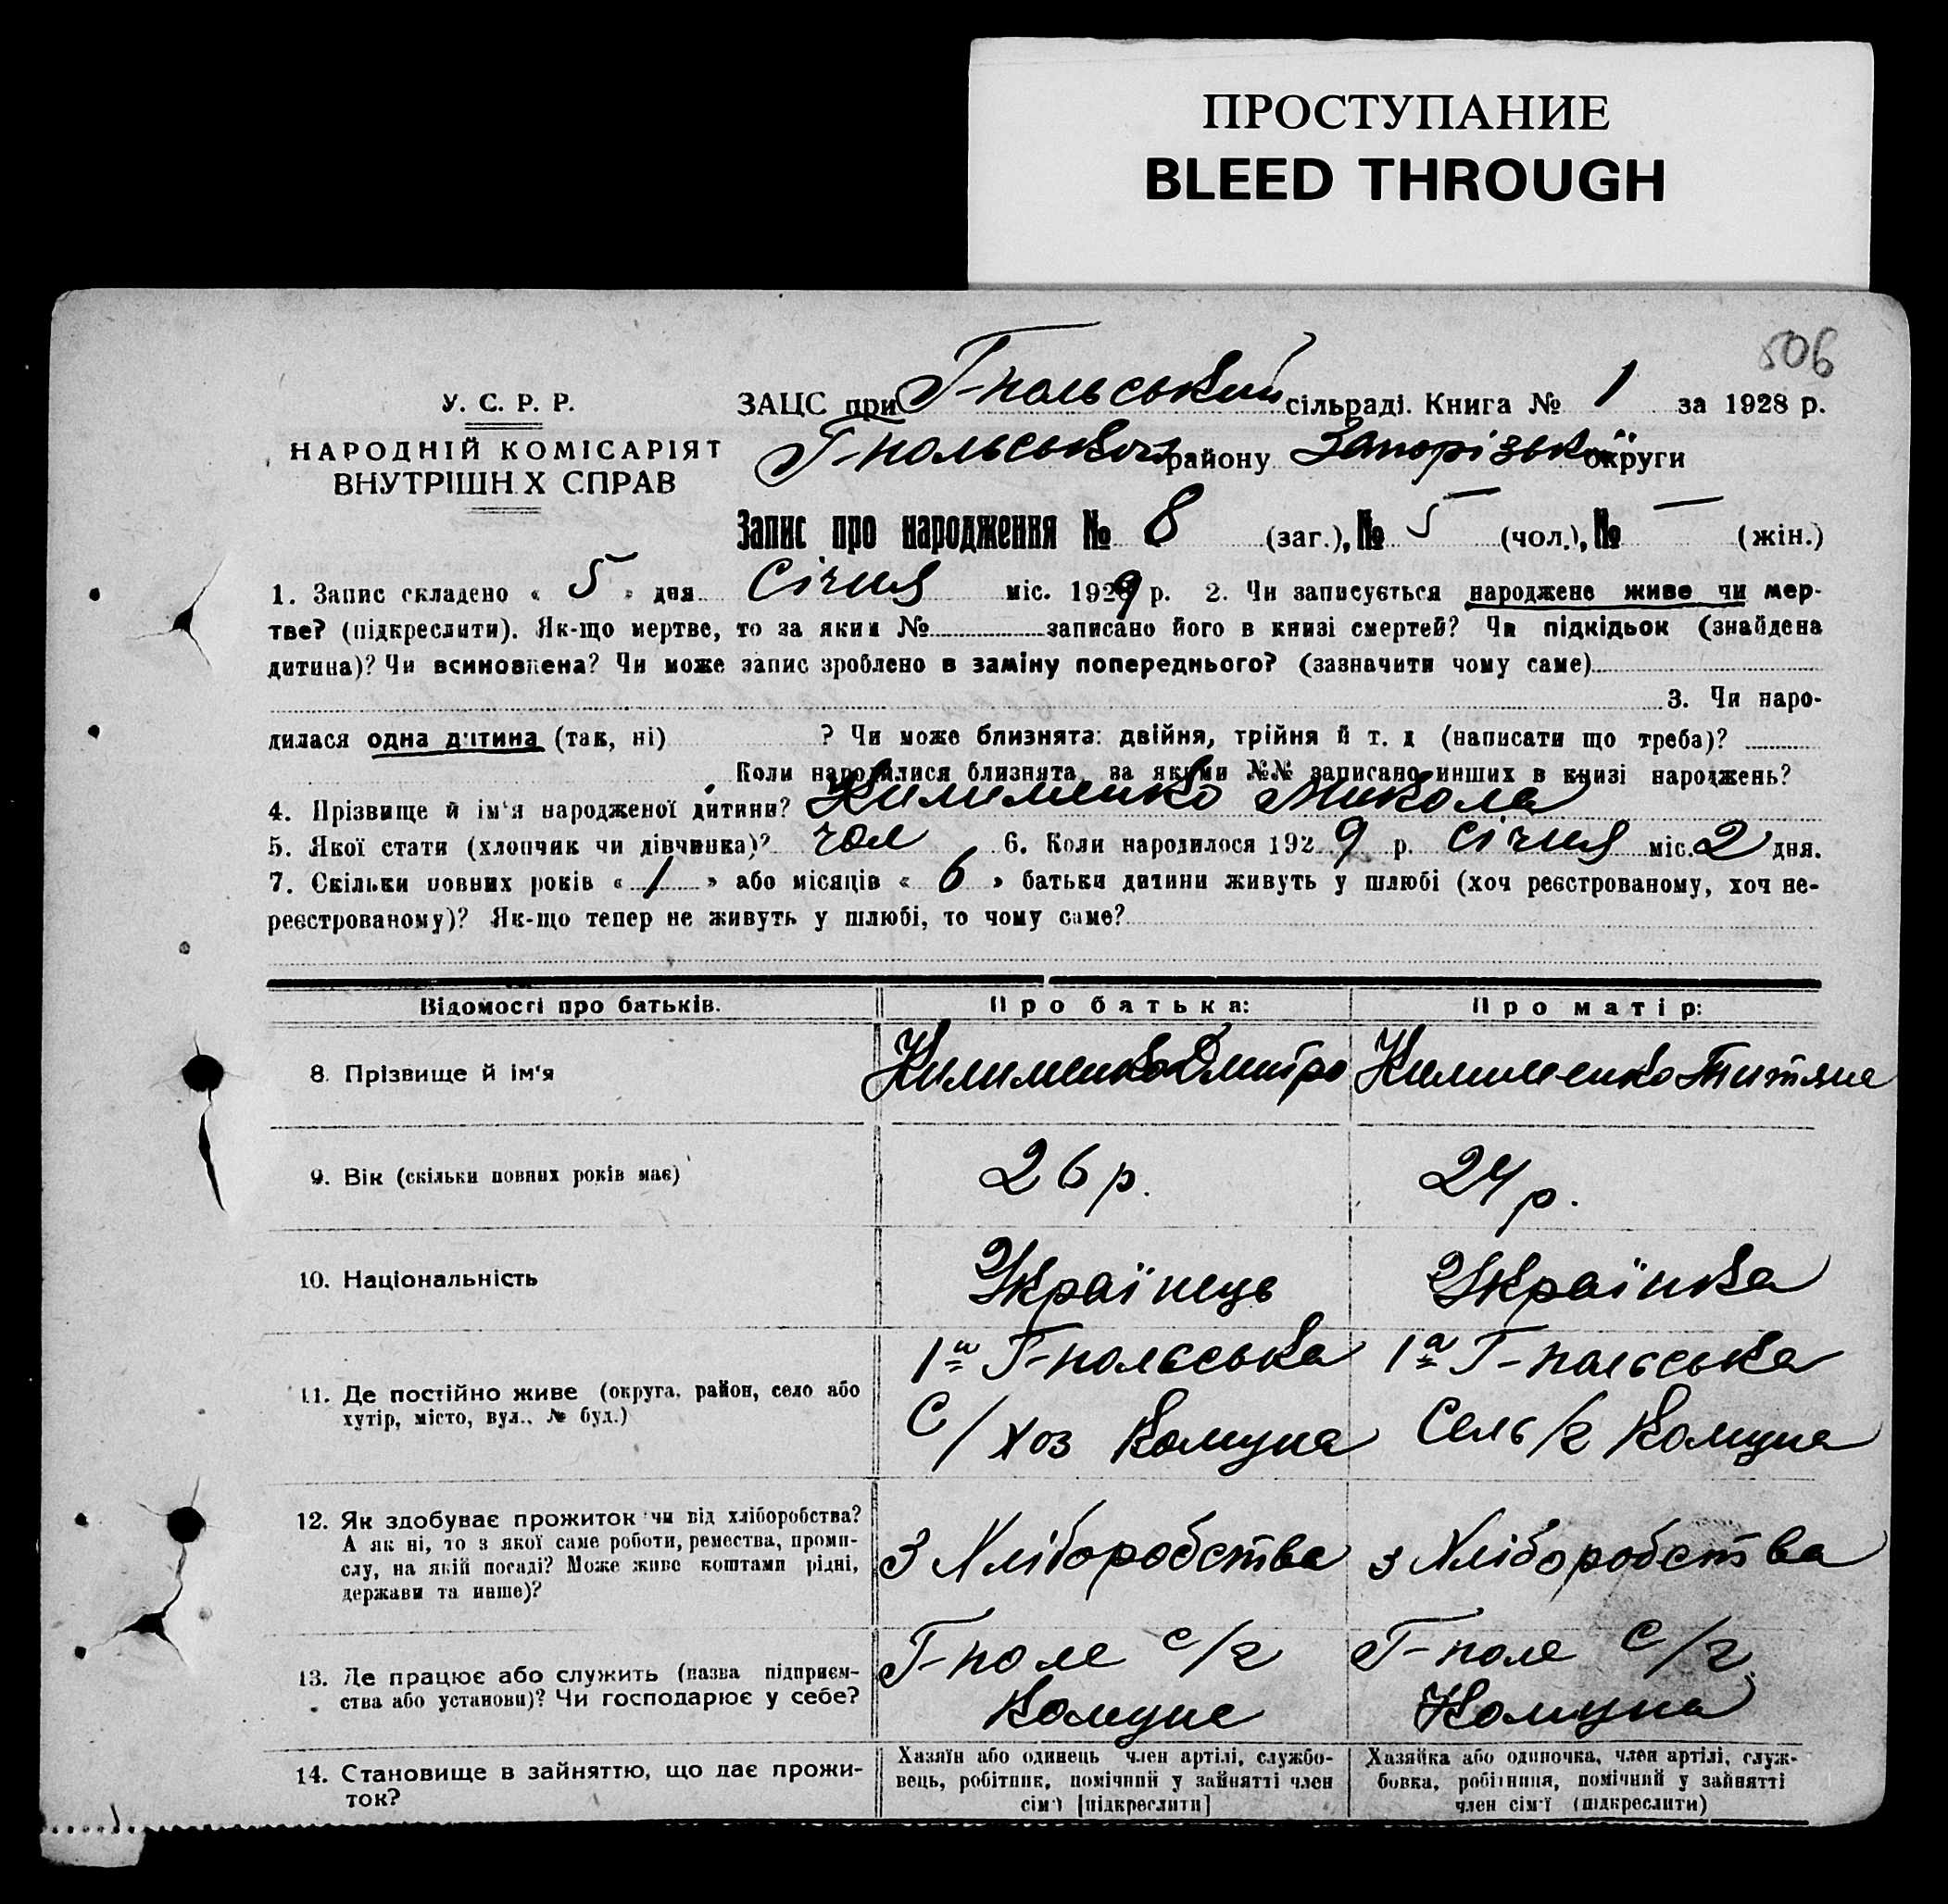 ПРОСТУПАНИЕ
BLEED THROUGH
506
У. С. Р. Р.
НАРОДНІЙ КОМІСАРІЯТ
ВНУТРІШН.Х СПРАВ
ЗАЦС при Г-польський сільраді. Книга № 1 за 1928 р.
Г-польського району Запорізької округи
Запис про народження № 8 (заг.), № 5 (чол.), № — (жін.)
1. Запис складено « 5 » дня Січня міс. 1929 р. 2. Чи записується народжене живе чи мер-
тве? (підкреслити). Як-що мертве, то за яким № записано його в книзі смертей? Чи підкідьок (знайдена
дитина)? Чи всиновлена? Чи може запис зроблено в заміну попереднього? (зазначити чому саме)
3. Чи наро-
дилася одна дитина (так, ні) ? Чи може близнята: двійня, трійня й т. д (написати що треба)?
Коли народилися близнята, за якими №№ записано инших в книзі народжень?
4. Прізвище й ім'я народженої дитини? Килименко Микола
5. Якої стати (хлопчик чи дівчинка)? чол 6. Коли народилося 1929 р. Січня міс. 2 дня.
7. Скільки повних років « 1 » або місяців « 6 » батьки дитини живуть у шлюбі (хоч реєстрованому, хоч не-
реєстрованому)? Як-що тепер не живуть у шлюбі, то чому саме?
Відомості про батьків. Про батька: Про матір:
8. Прізвище й ім'я Килименко Дмитро Килименко Титяна
9. Вік (скільки повних років має) 26 р. 24 р.
10. Національність Українець Українка
1а Г-польська 1а Г-польська
11. Де постійно живе (округа, район, село або
хутір, місто, вул., № буд.) С/хоз Комуна Сель/г Комуна
12. Як здобуває прожиток чи від хліборобства?
А як ні, то з якої саме роботи, ремества, проми-
слу, на якій посаді? Може живе коштами рідні, З Хліборобства з Хліборобства
держави та инше)?
Г-поле с/г Г-поле с/г
13. Де працює або служить (назва підприєм-
ства або установи)? Чи господарює у себе? Комуне Комуна
14. Становище в зайняттю, що дає прожи-
ток?
Хазяїн або одинець член артілі, службо-
вець, робітник, помічний у зайнятті член
сім'ї [підкреслити]
Хазяйка або одиночка, член артілі, служ-
бовка, робітниця, помічний у зайнятті
член сім'ї (підкреслити)